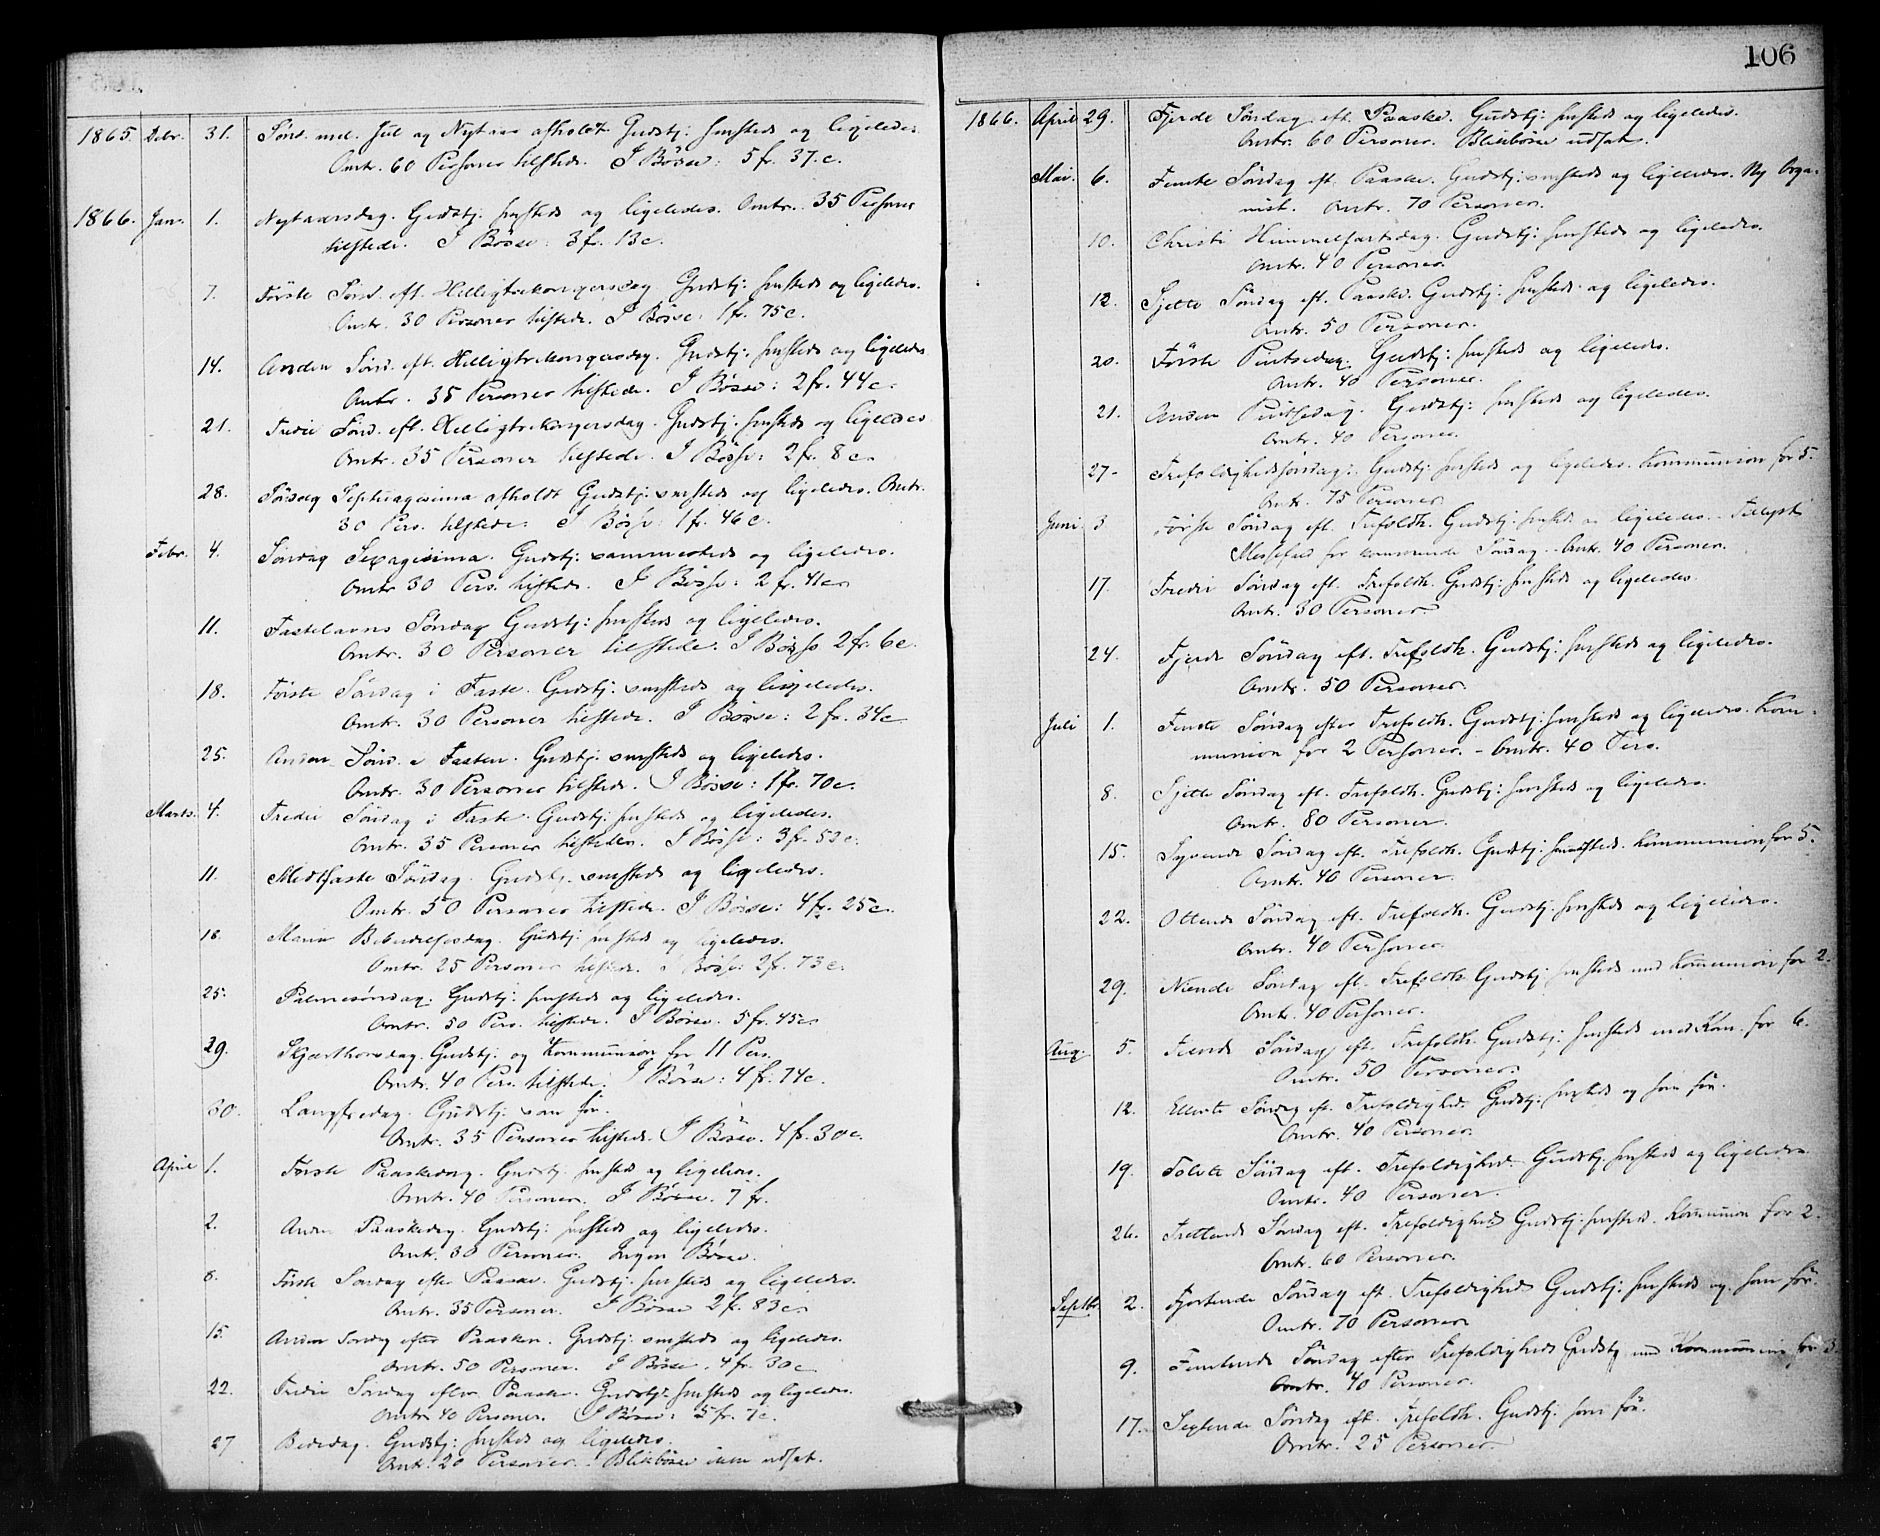 106
1865. Debr. 31. Sønd. mel. Jul og Nytaar afholdt Gudstj: smsteds og ligeledes.
Omtr. 60 Personer tilstede. I Bösse: 5 fr. 37. c.
1866. Jan. 1. Nytaarsdag. Gudstj: smsteds og ligeledes. Omtr. 35 Personer
tilstede. I Bösse: 3 fr. 13 c.
7. Förste Sønd. eft. Helligtrekongersdag Gudstj: smsteds og ligeledes.
Omtr. 30 Personer tilstede. I Bösse: 1 fr. 75 c.
14. Anden Sönd. eft. Helligtrekongersdag. Gudstj: smsteds og ligeledes
Omtr. 35 Personer tilstede. I Bösse: 2 fr. 44 c.
21. Tredie Sönd. eft. Helligtrekongersdag. Gudstj: smsteds og ligeledes
Omtr. 35 Personer tilstede. I Bösse: 2 fr. 8 c.
28. Søndag Septuagesima afholdt Gudstj: smsteds og ligeledes. Omtr.
30 Pers. tilstede. I Bösse: 1 fr. 46 c.
Febr. 4. Søndag Sexagesima. Gudstj: sammesteds og ligeledes.
Omtr 30 Pers. tilstede. I Bösse: 2 fr. 41 c.
11. Fastelavns Søndag Gudstj: smsteds og ligeledes.
Omtr. 30 Personer tilstede. I Bösse 2 fr. 6 c.
18. Förste Søndag i Faste. Gudstj: smsteds og ligeledes.
Omtr. 30 Personer tilstede. I Bösse: 2 fr. 34 c
25. Anden Sønd. i Fasten. Gudstj: smsteds og ligeledes.
Omtr. 30 Personer tilstede. I Bösse: 1 fr. 70 c.
Marts. 4. Tredie Søndag i Faste. Gudstj: smsteds og ligeledes.
Omtr. 35 Personer tilstede. I Bösse: 3 fr. 53 c.
11. Midtfaste Søndag. Gudstj. smsteds og ligeledes.
Omtr. 50 Personer tilstede. I Bösse: 4 fr. 25 c.
18. Mariæ Bebudelsesdag. Gudstj: smsteds og ligeledes.
Omtr. 25 Personer tilstede. I Bösse: 2 fr. 73 c.
25. Palmesøndag. Gudstj: smsteds og ligeledes.
Omtr. 50 Pers. tilstede. I Bösse. 5 fr. 45 c.
29. Skjærthorsdag. Gudstj: og Kommunion for 11 Pers.
Omtr. 40 Pers. tilstede. I Bösse: 4 fr. 74 c.
30. Langfredag. Gudstj. som før.
Omtr. 35 Personer tilstede. I Bösse. 4 fr. 30 c.
April 1. Første Paaskedag. Gudstj: smsteds og ligeledes.
Omtr. 40 Personer. I Bösse. 7 fr.
2. Anden Paaskedag. Gudstj: smsteds og ligeledes.
Omtr. 30 Personer. Ingen Bösse.
8. Første Søndag efter Paaske. Gudstj: smsteds og ligeledes.
Omtr. 35 Personer. I Bösse 2 fr. 83 c.
15. Anden Søndag efter Paasken. Gudstj: smsteds og ligeledes.
Omtr. 50 Personer. I Bösse. 4 fr. 30 c
22. Tredie Søndag efter Paaske. Gudstj: smsteds og ligeledes.
Omtr 40 Personer. I Bösse: 5 fr. 7 c.
27 Bededag. Gudstj: smsteds og ligeledes.
Omtr. 20 Personer. Blikbösse udsat.
1866. April 29. Fjerde Søndag eft. Paaske. Gudstj: smsteds og ligeledes.
Omtr. 60 Personer. Blikbösse udsat.
Mai. 6. Femte Søndag eft. Paaske. Gudstj: smsteds og ligeledes. Ny Orga-
nist. Omtr. 70 Personer.
10. Christi Himmelfartsdag. Gudstj: smsteds og ligeledes.
Omtr. 40 Personer.
12. Sjette Søndag eft. Paaske. Gudstj: smsteds og ligeledes.
Omtr. 50 Personer.
20. Første Pintsedag. Gudstj: smsteds og ligeledes.
Omtr. 40 Personer.
21. Anden Pintsedag. Gudstj: smsteds og ligeledes.
Omtr. 40 Personer.
27. Trefoldighedssøndag. Gudstj: smsteds og ligeledes. Kommunion for 5.
Omtr. 75 Personer
Juni 3 Første Søndag eft. Trefoldh. Gudstj: smsteds og ligeledes.
for kommende Søndag. Omtr. 40 Personer.
17. Tredie Søndag eft. Trefoldh. Gudstj: smsteds og ligeledes.
Omtr. 30 Personer
24. Fjerde Søndag eft. Trefoldh. Gudstj: smsteds og ligeledes.
Omtr. 50 Personer.
Juli 1. Femte Søndag efter Trefoldh. Gudstj: smsteds og ligeledes. Kom-
munion for 2 Personer. - Omtr. 40 Pers.
8. Sjette Søndag eft. Trefoldh. Gudstj: smsteds og ligeledes.
Omtr. 80 Personer.
15. Syvende Søndag eft. Trefoldh. Gudstj: smsteds. Kommunion for 5.
Omtr. 40 Personer.
22. Ottende Søndag eft. Trefoldh. Gudstj: smsteds og ligeledes.
Omtr. 40 Personer.
29. Niende Søndag eft. Trefoldh. Gudstj: smsteds med Kommunion for 2.
Omtr. 40 Personer.
Aug. 5. Tiende Søndag eft. Trefoldh. Gudstj: smsteds med Kom. for 6.
Omtr. 50 Personer.
12. Ellevte Søndag eft. Trefoldighed. Gudstj: smsteds og som før.
Omtr. 40 Personer.
19. Tolvte Søndag eft. Trefoldighed. Gudstj: smsteds og ligeledes
Omtr. 40 Personer.
26. Trettende Søndag eft. Trefoldighed Gudstj: smsteds. Kommunion for 2.
Omtr. 60 Personer.
Septbr. 2. Fjortende Søndag eft. Trefoldighed Gudstj: smsteds og som før.
Omtr. 70 Personer
9. Femtende Søndag efter Trefoldigheds Gudstj med Kommunion for 3
Omtr. 40 Personer.
17. Sextende Søndag eft. Trefoldh. Gudstj. som før.
Omtr. 25 Personer.